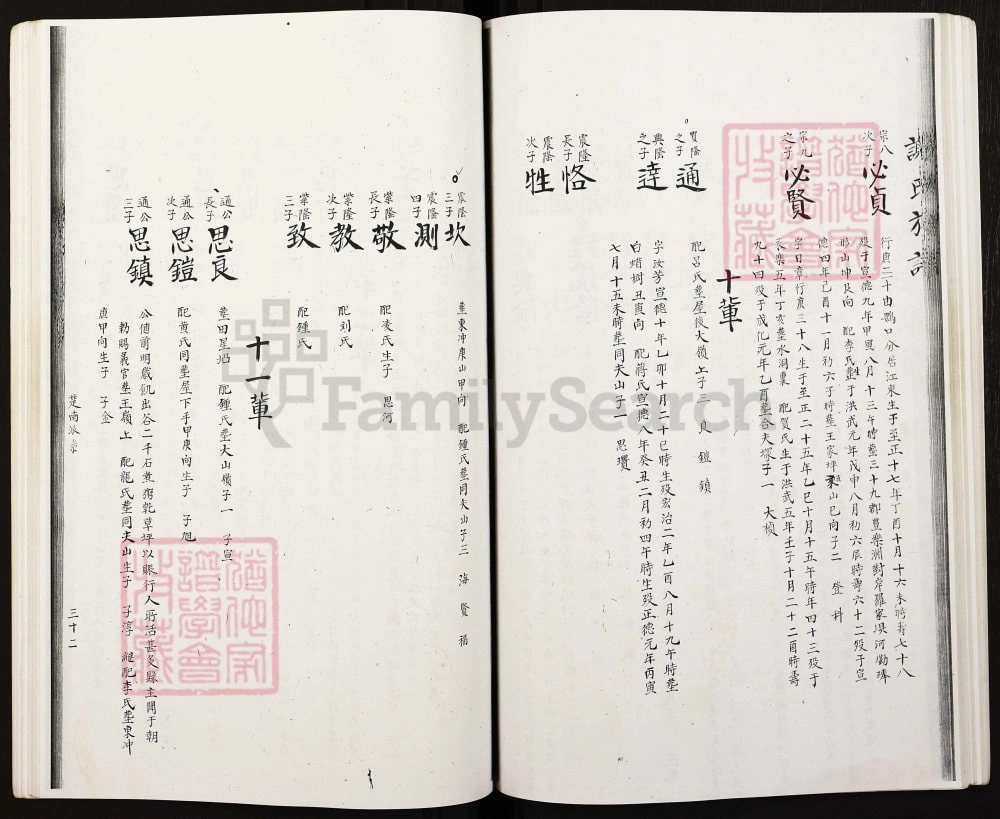 宗八次子 必貞
行貞二十由鸚口分居江東生于至正十七年丁酉十月十六未時壽七十八
歿于宣德九年甲寅八月十三午時葬三十九都豐樂洲對岸羅家埧河勘磚
形山坤艮向 配李氏生于洪武元年戊申八月初六辰時壽六十二歿于宣
德四年己酉十一月初六子時葬王家坪巽山巳向子二 登 科
宗九之子 必賢
字日章行貞三十八生于至正二十五年乙巳十月十五午時年四十三歿于
永樂五年丁亥葬水洞衝 配賀氏生于洪武五年壬子十月二十二酉時壽
九十四歿于成化元年乙酉葬合夫塚子一 大楨
十輩
貫隆之子 通
配呂氏葬屋後大嶺上子三 良 鎧 鎮
興隆之子 達
字汝芳宣德十年乙卯十月二十巳時生歿宏治二年乙酉八月十九午時葬
白蜡樹丑寅向 配蔣氏宣德八年癸丑二月初四午時生歿正德元年丙寅
七月十五未時葬同夫山子一 思瓚
震隆長子 恪
震隆次子 牲
震隆三子 坎
葬東冲庚山甲向 配鍾氏葬同夫山子三 海 賢 福
震隆四子 測
蒙隆長子 敬
配凌氏生子 思河
蒙隆次子 教
配刘氏
蒙隆三子 致
配鍾氏
十一輩
通公長子 思良
葬田星塘 配鍾氏葬大山嶺子一 子宣
通公次子 思鎧
配黃氏同葬屋下手甲庚向生子 子旭
通公三子 思鎮
公値前明歲飢出谷二千石煮粥乾草坪以賑行人所活甚多縣主聞于朝
勅賜義官葬王嶺上 配龍氏葬同夫山生子 子淳 繼配李氏葬東冲
庚甲向生子 子金
楚南派系
三十二
FamilySearch